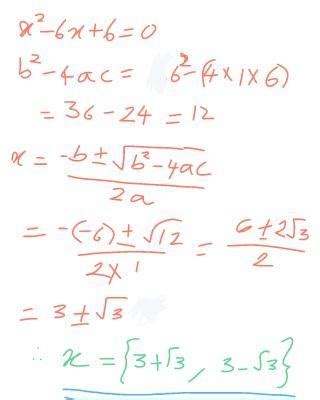 x²-6x+6=0
b²-4ac = 6²-(4×1×6)
= 36-24 = 12
x = -b±√b²-4ac / 2a
= -(-6)±√12 / 2×1 = 6±2√3 / 2
= 3±√3
∴ x = {3+√3, 3-√3}